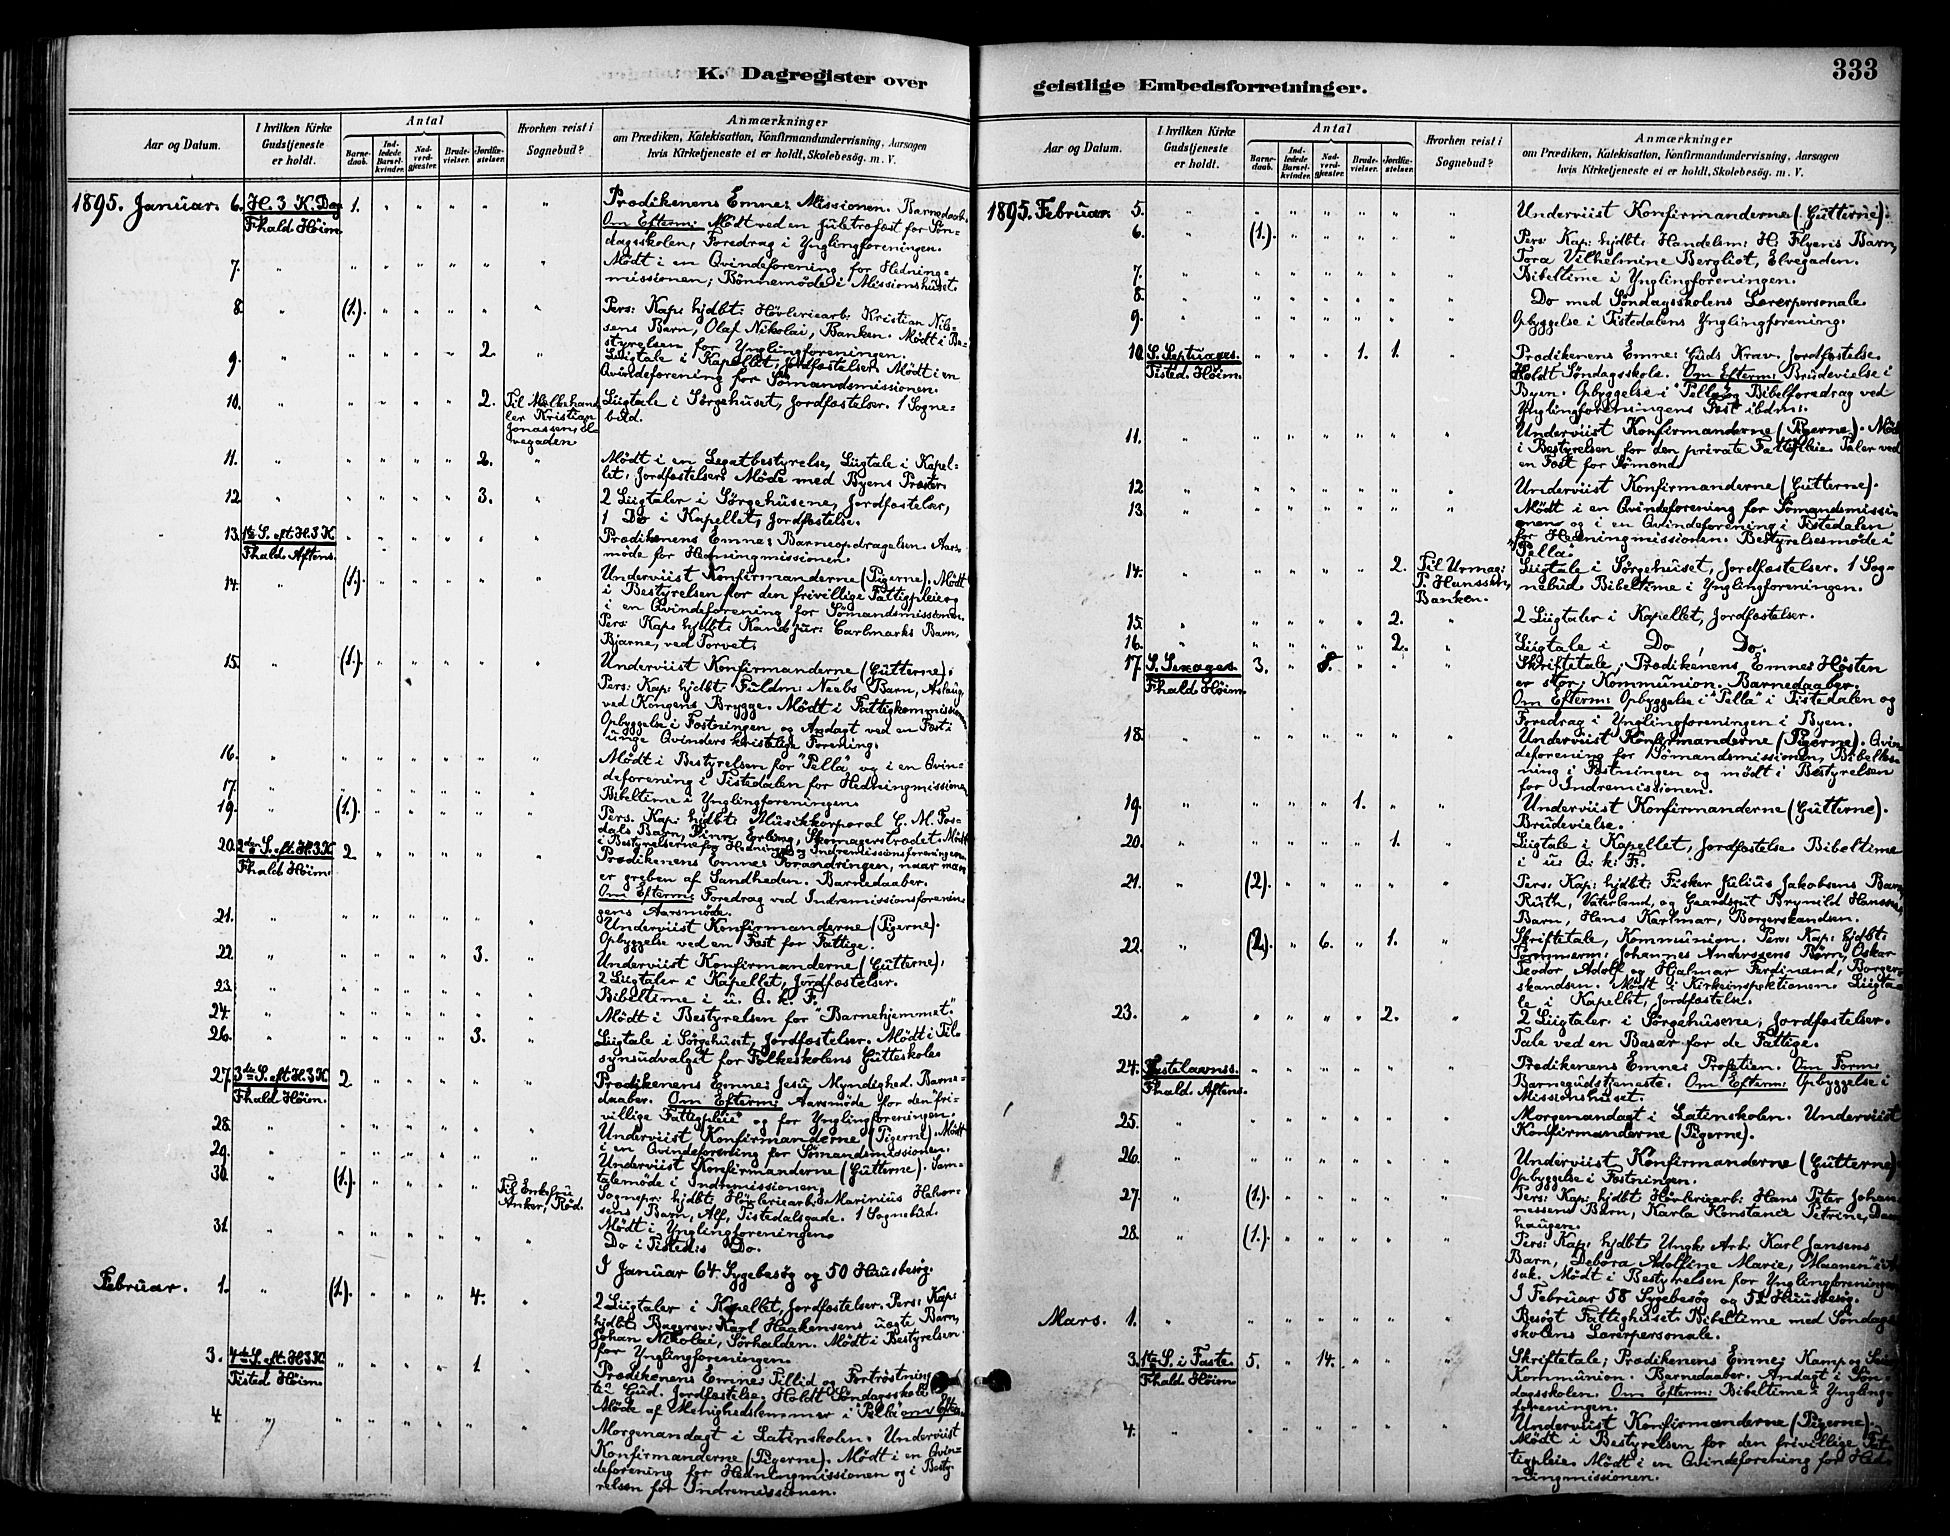 K. Dagregister over
Aar og Datum.
I hvilken Kirke
Gudstjeneste
er holdt.
Antal
Barne-
daab.
Ind-
ledede
Barsel-
kvinder.
Nad-
verd-
gjester.
Brude-
vielser.
Jordfæ-
stelser.
Hvorhen reist i
Sognebud?
Anmærkninger
om Prædiken, Katekisation, Konfirmandundervisning, Aarsagen
hvis Kirketjeneste ei er holdt, Skolebesøg. m. V.
1895. Januar. 6. H. 3 K. Dag 1. " " " " "
Fhald Høim.
Prædikenens Emne: Missionen. Barnedaab.
Om Efterm: Mødt ved en Juletræfest for Søn-
dagsskolen, Foredrag i Ynglingforeningen.
7. " " " " " " "
Mødt i en Qvindeforening for Hedninge-
missionen; Bønnemøde i Missionshuset.
8. " (1.) " " " " "
Pers: Kap: hjdbt: Høvleriearb: Kristian Nils-
sens Barn, Olaf Nikolai, Banken. Mødt i Be-
styrelsen for Ynglingforeningen.
9. " " " " " 2. "
Liigtale i Kapellet, Jordfæstelser. Mødt i en
Qvindeforening for Sømandsmissionen.
10. " " " " " 2. Til Melhehand-
ler Kristian
Jonassen, El-
vegaden
Liigtale i Sørgehuset, Jordfæstelser. 1 Sogne-
bud.
11. " " " " " 2. "
Mødt i en Legatbestyrelse, Liigtale i Kapel-
let, Jordfæstelser. Møde med Byens Præster.
12 " " " " " 3. "
2 Liigtaler i Sørgehusene, Jordfæstelser,
1 Do i Kapellet, Jordfæstelse.
13. 1te S. eft H. 3 K " " " " " "
Fhald Aftens.
Prædikenens Emne: Barneopdragelsen. Aars-
møde for Hedningmissionen.
14. " (1.) " " " " "
Underviist Konfirmanderne (Pigerne). Mødt
i Bestyrelsen for den frivillige Fattigpleie og
i en Qvindeforening for Sømandsmissionen.
Pers: Kap: hjdbt: Kand: jur: Carlmarks Barn,
Bjarne, ved Torvet.
15. " (1.) " " " " "
Underviist Konfirmanderne (Gutterne).
Pers: Kap: hjdbt: Fuldm: Neebs Barn, Aslaug,
ved Kongens Brygge. Mødt i Fattigkommission
Opbyggelse i Fæstningen og Andagt ved en Fest i
unge Qvinders kristelige Forening.
16. " " " " " " "
Mødt i Bestyrelsen for "Pella" og i en Qvin-
deforening i Tistedalen for Hedningmissionen
17. " " " " " " "
Bibeltime i Ynglingforeningen.
19. " (1.) " " " " "
Pers: Kap: hjdbt: Musikkorporal C. M. Fos-
dals Barn, Finn Erling, Skomagerstrædet. Mødt
i Bestyrelserne for Hednings og Indremissionsforeningerne
20. 2den S. eft. H. 3 K 2 " " " " "
Fhald Høim.
Prædikenens Emne: Forandringen, naar man
er greben af Sandheden. Barnedaaber.
Om Efterm: Foredrag ved Indremissionsforenin-
gens Aarsmøde.
21. " " " " " " "
Underviist Konfirmanderne (Pigerne).
Opbyggelse ved en Fest for Fattige.
22. " " " " " 3. "
Underviist Konfirmanderne (Gutterne),
2 Liigtaler i Kapellet, Jordfæstelser.
23. " " " " " " "
Bibeltime i u. Q. k. F.
24. " " " " " " "
Mødt i Bestyrelsen for "Barnehjemmet."
26. " " " " " 3. "
Liigtale i Sørgehuset, Jordfæstelser. Mødt i Til-
synsudvalget for Folkeskolens Gutteskole
27. 3die S. eft H. 3 K 2 " " " " "
Fhald Høim.
Prædikenens Emne: Jesu Myndighed. Barne-
daaber. Om Efterm: Aarsmøde for den "fri-
villige Fattigpleie" og for Ynglingforeningen.
28. " " " " " " "
Underviist Konfirmanderne (Pigerne). Mødt
i en Qvindeforening for Sømandsmissionen.
29. " " " " " " "
Underviist Konfirmanderne (Gutterne). Sam-
talemøde i Indremissionen.
30. " (1.) " " " " Til Enkefru
Anker, Rød.
Sognepr: hjdbt: Høvleriearb: Marinius Helver-
sens Barn, Alf, Tistedalsgade. 1 Sognebud.
Mødt i Ynglingforeningen.
31. " " " " " " "
Do i Tisted:s Do.
I Januar 64 Sygebesøg og 50 Huusbesøg.
Februar. 1. " (1.) " " " 4. "
2 Liigtaler i Kapellet, Jordfæstelser. Pers: Kap:
hjdbt: Bagersv: Karl Haakensens uægte Barn,
Johan Nikolai, Sørhalden. Mødt i Bestyrelsen
for Ynglingforeningen.
3. 4de S. eft H 3 K " " " " 1 "
Tisted Høim.
Prædikenens Emne: Tillid og Fortrøstning
til Gud. Jordfæstelse. Holdt Søndagsskole
Møde af Menighedslemmer i "Pella" om Efterm.
4. " " " " " " "
Morgenandagt i Latinskolen. Underviist
Konfirmanderne (Pigerne). Mødt i en Qvin-
deforening for Hedningmissionen og i Besty-
relsen for Indremissionen.
geistlige Embedsforretninger.
333
Aar og Datum.
I hvilken Kirke
Gudstjeneste
er holdt.
Antal
Barne-
daab.
Ind-
ledede
Barsel-
kvinder.
Nad-
verd-
gjester.
Brude-
vielser.
Jordfæ-
stelser.
Hvorhen reist i
Sognebud?
Anmærkninger
om Prædiken, Katekisation, Konfirmandundervisning, Aarsagen
hvis Kirketjeneste ei er holdt, Skolebesøg. m. V.
1895. Februar. 5. " " " " " " "
Underviist Konfirmanderne (Gutterne).
6. " (1.) " " " " "
Pers: Kap: hjdbt: Handelsm: H. Flyens Barn,
Tora Vilhelmine Bergliot, Elvegaden.
7. " " " " " " "
Bibeltime i Ynglingforeningen.
8. " " " " " " "
Do med Søndagsskolens Lærerpersonale.
9. " " " " " " "
Opbyggelse i Tistedalens Ynglingforening.
10. S. Septuages. " " " 1. 1. "
Tisted. Høim.
Prædikenens Emne: Guds Krav. Jordfæstelse.
Holdt Søndagsskole. Om Efterm: Brudevielse i
Byen. Opbyggelse i "Pella" og Bibelforedrag ved
Ynglingforeningens Fest ibdm:
11. " " " " " " "
Underviist Konfirmanderne (Pigerne). Mødt
i Bestyrelsen for den private Fattigpleie. Taler ved
en Fest for Sømænd
12 " " " " " " "
Underviist Konfirmanderne (Gutterne).
13. " " " " " " "
Mødt i en Qvindeforening for Sømandsmissi-
onen og i en Qvindeforening i Tistedalen
for Hedningmissionen. Bestyrelsesmøde i
"Pella".
14. " " " " " 2. Til Urmag:
P. Hanssen,
Banken.
Liigtale i Sørgehuset, Jordfæstelser. 1 Sog-
nebud. Bibeltime i Ynglingforeningen.
15. " " " " " 2. "
2 Liigtaler i Kapellet, Jordfæstelser.
16. " " " " " 2. "
Liigtale i Do, Do.
17. S. Sexages. 3. " 8. " " "
Fhald Høim.
Skriftetale, Prædikenens Emne: Høsten
er stor; Kommunion. Barnedaaber.
Om Efterm: Opbyggelse i "Pella" i Tistedalen og
Foredrag i Ynglingforeningen i Byen.
18. " " " " " " "
Underviist Konfirmanderne (Pigerne). Qvin-
deforening for Sømandsmissionen, Bibellæs-
ning i Fæstningen og mødt i Bestyrelsen
for Indremissionen.
19. " " " " 1. " "
Underviist Konfirmanderne (Gutterne).
Brudevielse.
20. " " " " " 1. "
Liigtale i Kapellet, Jordfæstelse. Bibeltime
i u: Q: k: F:
21. " (2). " " " " "
Pers: Kap: hjdbt: Fisker Julius Jakobsens Barn
Ruth, Vaterland, og Gaardsgut Brynild Hanssens
Barn, Hans Karlmar, Borgerskandsen.
22. " (2.) " 6. " 1. "
Skriftetale, Kommunion. Pers: Kap: hjdbt:
Tømmerm: Johannes Anderssens Børn, Oskar
Teodor, Adolf og Hjalmar Ferdinand, Borger-
skandsen. Mødt i Kirkeinspektionen. Liigta-
le i Kapellet, Jordfæstelse.
23. " " " " " 2. "
2 Liigtaler i Sørgehusene, Jordfæstelser.
Tale ved en Basar for de Fattige.
24. Fastelavnss. " " " " " "
Fhald. Aftens.
Prædikenens Emne: Profetien. Om Form:
Barnegudstjeneste. Om Efterm: Opbyggelse i
Missionshuset.
25. " " " " " " "
Morgenandagt i Latinskolen. Underviist
Konfirmanderne (Pigerne).
26. " " " " " " "
Underviist Konfirmanderne (Gutterne).
Opbyggelse i Fæstningen.
27. " (1.) " " " " "
Pers: Kap: hjdbt: Høvleriearb: Hans Peter Johan-
nessens Barn, Karla Konstance Petrine,
haugen.
28. " (1.) " " " " "
Pers: Kap: hjdbt: Ungk: Arb: Karl Jansens
Barn, Debora Adolfine Marie, "Maanen" i
sak. Mødt i Bestyrelsen for Ynglingforeningen
I Februar 58 Sygebesøg og 52 Huusbesøg.
Mars. 1. " " " " " " "
Besøgt Fattighuset. Bibeltime med Søndags-
skolens Lærerpersonale.
3. 1te S. i Faste. 5. " 14. " " "
Fhald Høim.
Skriftetale; Prædikenens Emne: Kamp og Seier
Kommunion. Barnedaaber. Andagt i Søn-
dagsskolen. Om Efterm: Bibeltime i Yngling-
foreningen.
4. " " " " " " "
Underviist Konfirmanderne (Pigerne).
Mødt i Bestyrelsen for den frivillige Fat-
tigpleie. Mødt i en Qvindeforening for Hed-
ningmissionen.